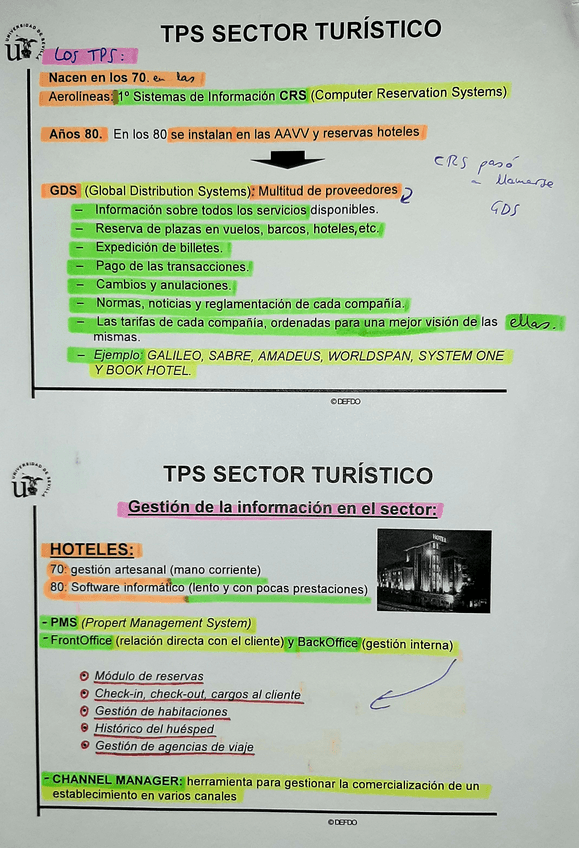 UNIVERSIDAD DE SEVILLA
TPS SECTOR TURÍSTICO
LOS TPS:
Nacen en los 70. en las
Aerolíneas: 1º Sistemas de Información CRS (Computer Reservation Systems)
Años 80. En los 80 se instalan en las AAVV y reservas hoteles
CRS pasó
a llamarse
GDS
GDS (Global Distribution Systems): Multitud de proveedores
– Información sobre todos los servicios disponibles.
– Reserva de plazas en vuelos, barcos, hoteles, etc.
– Expedición de billetes.
– Pago de las transacciones.
– Cambios y anulaciones.
– Normas, noticias y reglamentación de cada compañía.
– Las tarifas de cada compañía, ordenadas para una mejor visión de las ellas.
mismas.
– Ejemplo: GALILEO, SABRE, AMADEUS, WORLDSPAN, SYSTEM ONE
Y BOOK HOTEL.
© DEFDO
UNIVERSIDAD DE SEVILLA
TPS SECTOR TURÍSTICO
Gestión de la información en el sector:
HOTELES:
70: gestión artesanal (mano corriente)
80: Software informático (lento y con pocas prestaciones)
HOTEL
- PMS (Propert Management System)
- FrontOffice (relación directa con el cliente) y BackOffice (gestión interna)
Módulo de reservas
Check-in, check-out, cargos al cliente
Gestión de habitaciones
Histórico del huésped
Gestión de agencias de viaje
- CHANNEL MANAGER: herramienta para gestionar la comercialización de un
establecimiento en varios canales
© DEFDO